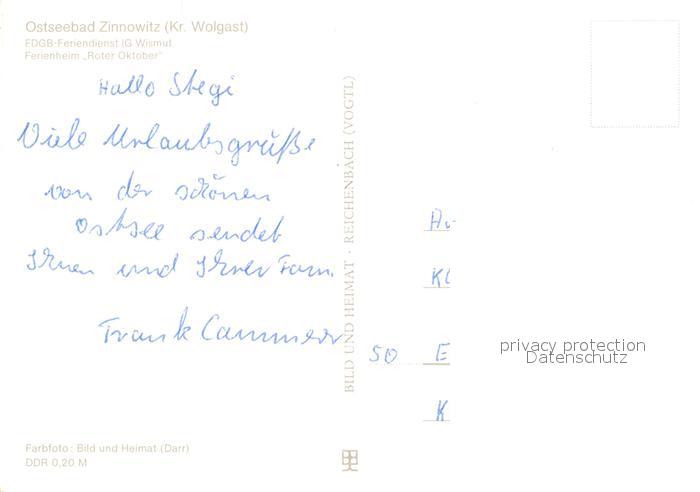 Ostseebad Zinnowitz (Kr. Wolgast)
FDGB-Feriendienst IG Wismut
Ferienheim „Roter Oktober“
Hallo Stegi
Viele Urlaubsgrüße
von der schönen
Ostsee sendet
Ihnen und Ihrer Fam.
Frank Cammeer
BILD UND HEIMAT · REICHENBACH (VOGTL)
50 E
K
privacy protection
Datenschutz
Farbfoto: Bild und Heimat (Darr)
DDR 0,20 M